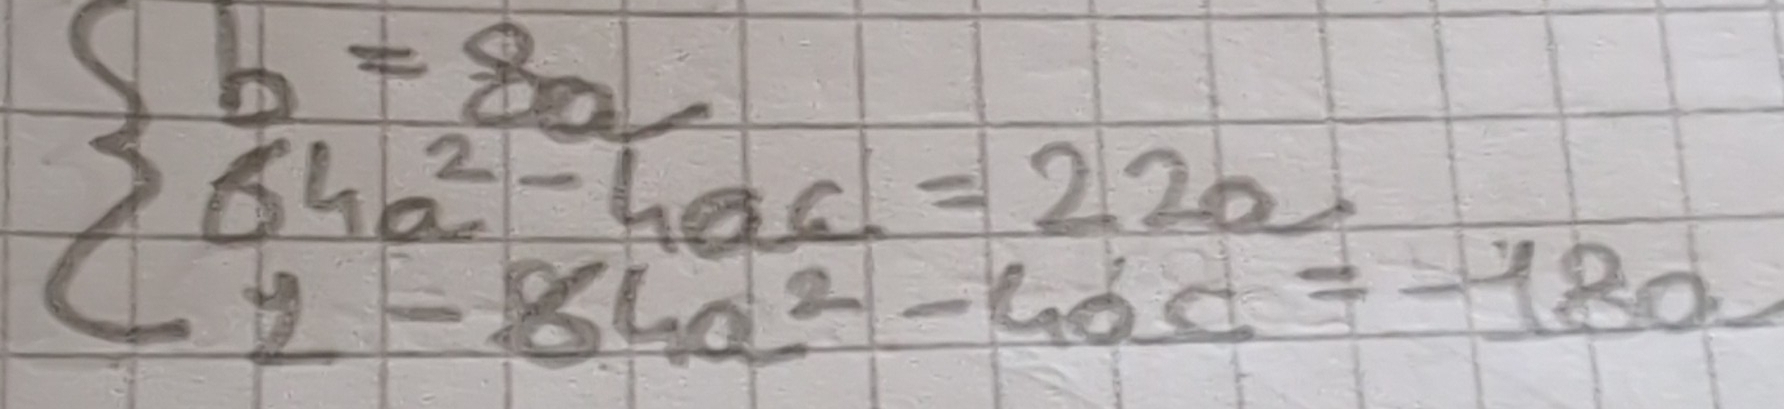 { b = 8a
64a² - 4ac = 22a
1 - 64a² - 4ac = -18a